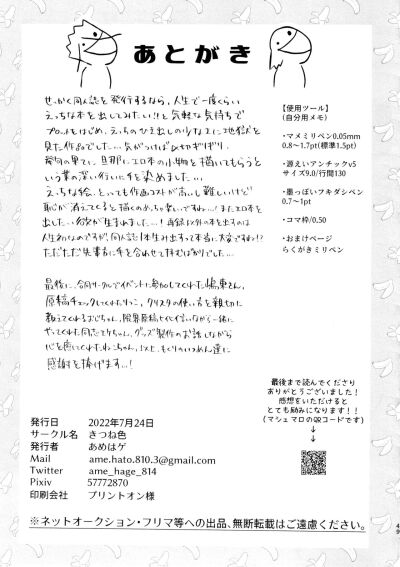 あとがき
せっかく同人誌を発行するなら、人生で一度くらい
えっちな本を出してみたい!!と気軽な気持ちで
プロットをはじめ、えっちの少なさに地獄を
見た作品でした…気がつけば〆切ぎりぎり。
発行の果てに、旦那にエロ本の小物を描いてもらうと
いう業の深い行いに手を染めました…
えっちな絵、とっても作画コストが高いし難しいけど
恥が消えてくると描くのめっちゃ楽しいですね…!またエロ本を
出したい欲が生まれました…!再録以外の本を出すのは
人生初なのですが、同人誌1本生み出すって本当に大変ですね!?
ただただ先輩者に手を合わせて拝むばかりでした…
最後に、合同サークルでイベントに参加してくれた嶋東さん、
原稿チェックしてくれたりっこ、クリスタの使い方を親切に
教えてくれるおじちゃん、限界原稿ヒイヒイ言いながら一緒に
やってくれた同志てけちゃん、グッズ製作のお話しながら
心を癒してくれたねこちゃん、以上、もぐりのいつめん達に
感謝を捧げます…!
【使用ツール】
(自分用メモ)
・マメミリペン0.05mm
0.8〜1.7pt(標準1.5pt)
・源えいアンチックv5
サイズ9.0/行間130
・墨っぽいフキダシペン
0.7〜1pt
・コマ枠/0.50
・おまけページ
らくがきミリペン
最後まで読んでくださり
ありがとうございました!
感想をいただけると
とても励みになります!!
(マシュマロのQRコードです)
↓
↓
発行日 2022年7月24日
サークル名 きつね色
発行者 あめはゲ
Mail ame.hato.810.3@gmail.com
Twitter ame_hage_814
Pixiv 57772870
印刷会社 プリントオン様
※ネットオークション・フリマ等への出品、無断転載はご遠慮ください。
49